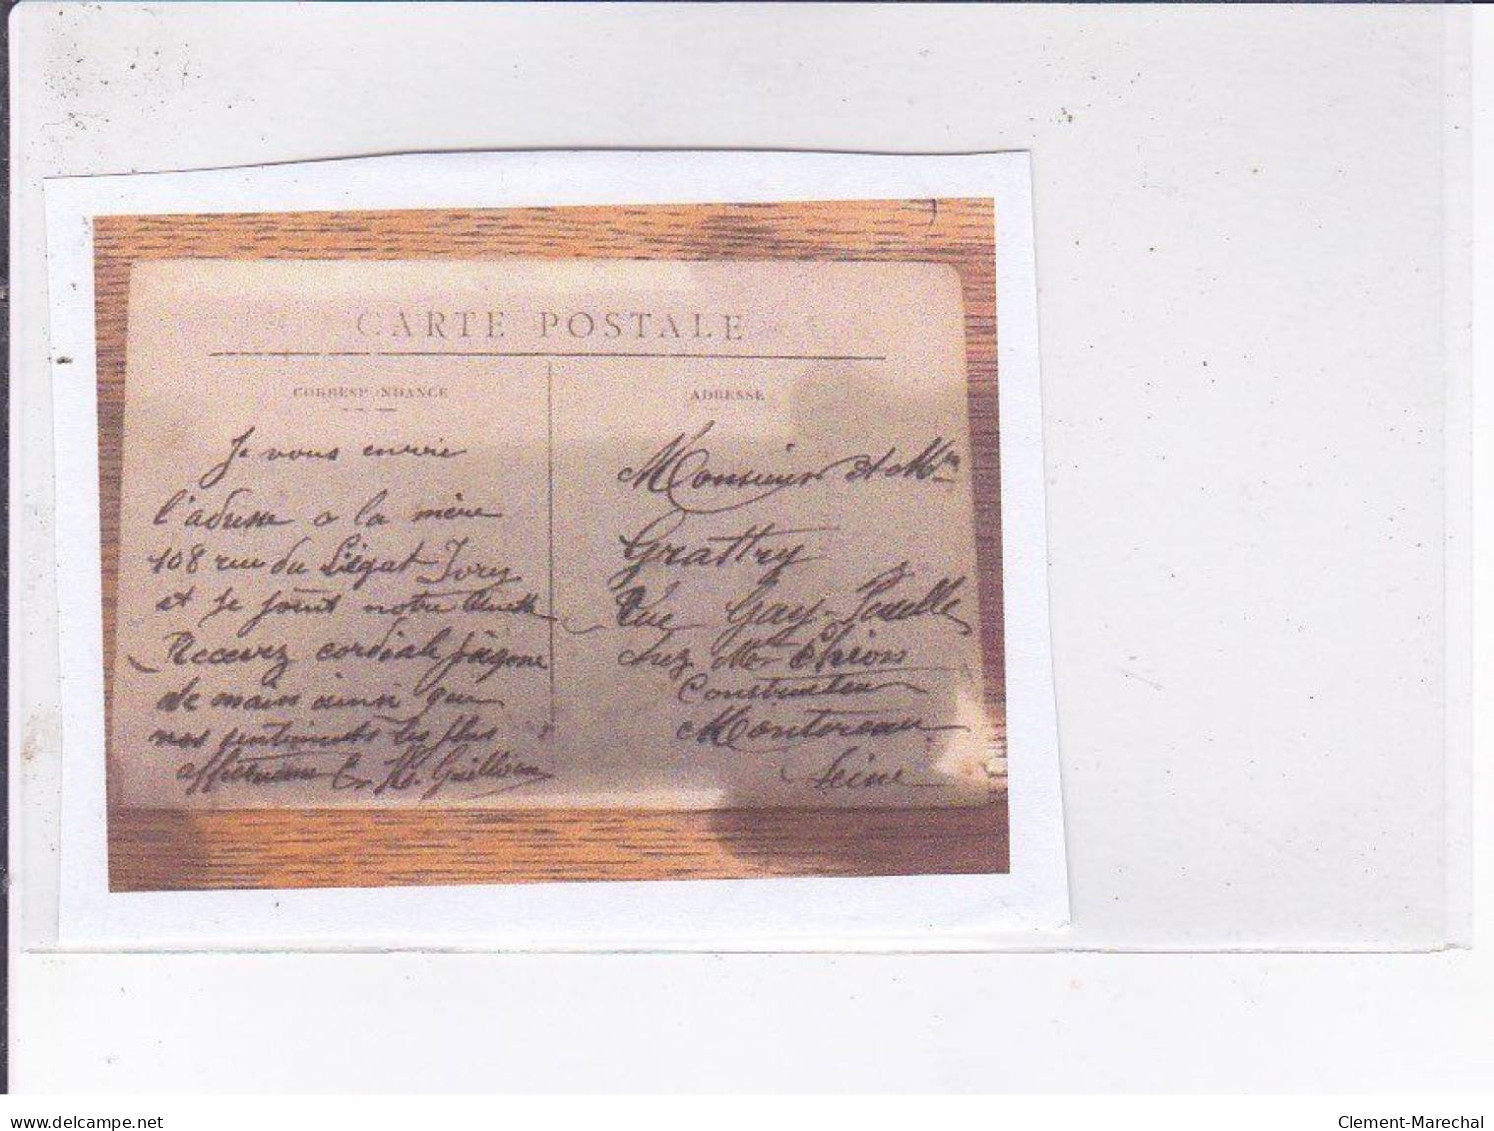 CARTE POSTALE
CORRESPONDANCE
Je vous envoie
l'adresse a la mère
108 rue du Liégat Ivry
et je joint notre
Recevez cordiale
de main ainsi que
nos sentiments les plus
Guillien
ADRESSE
Monsieur et Mme
Grattry
Rue Gay-
chez Mr Thion
Constructeur
Montereau
Seine
delcampe.net
Clement-Marechal